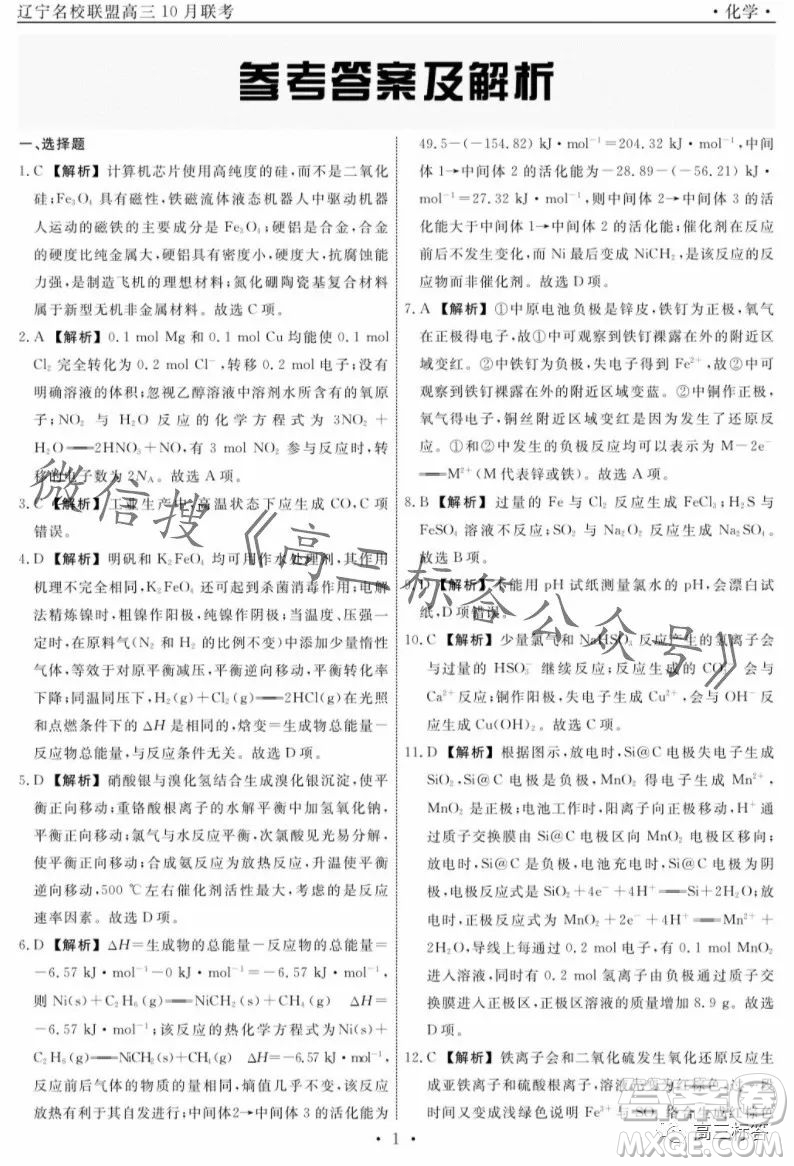 辽宁名校联盟高三10月联考
·化学·
参考答案及解析
一、选择题
1.C 【解析】计算机芯片使用高纯度的硅，而不是二氧化
硅；Fe₃O₄ 具有磁性，铁磁流体液态机器人中驱动机器
人运动的磁铁的主要成分是 Fe₃O₄；硬铝是合金，合金
的硬度比纯金属大，硬铝密度小、强度大，抗腐蚀能
力强，是制造飞机的理想材料；氮化硼陶瓷基复合材料
属于新型无机非金属材料。故选C项。
2.A 【解析】0.1 mol Mg 和 0.1 mol Cu 均能使 0.1 mol
Cl₂ 完全转化为 0.2 mol Cl⁻，转移 0.2 mol 电子；没有
明确溶液的体积；忽视乙醇溶液中溶剂水所含有的氧原
子；NO₂ 与 H₂O 反应的化学方程式为 3NO₂＋
H₂O══2HNO₃＋NO，有 3 mol NO₂ 参与反应时，转
移的电子数为 2N_A。故选A项。
3.C 【解析】工业生产中，高温状态下应生成 CO，C项
错误。
4.D 【解析】明矾和 K₂FeO₄ 均可用作水处理剂，其作用
机理不完全相同，K₂FeO₄ 还可起到杀菌消毒作用；电解
法精炼镍时，粗镍作阳极，纯镍作阴极；当温度、压强一
定时，在原料气(N₂ 和 H₂ 的比例不变)中添加少量惰性
气体，等效于对原平衡减压，平衡逆向移动，平衡转化率
下降；同温同压下，H₂(g)＋Cl₂(g)══2HCl(g)在光照
和点燃条件下的 ΔH 是相同的，焓变＝生成物总能量－
反应物总能量，与反应条件无关。故选D项。
5.D 【解析】硝酸银与溴化氢结合生成溴化银沉淀，使平
衡正向移动；重铬酸根离子的水解平衡中加氢氧化钠，
平衡正向移动；氯气与水反应平衡，次氯酸见光易分解，
使平衡正向移动；合成氨反应为放热反应，升温使平衡
逆向移动，500 ℃左右催化剂活性最大，考虑的是反应
速率因素。故选D项。
6.D 【解析】ΔH＝生成物的总能量－反应物的总能量＝
－6.57 kJ·mol⁻¹－0 kJ·mol⁻¹＝－6.57 kJ·mol⁻¹，
则 Ni(s)＋C₂H₆(g)══NiCH₂(s)＋CH₄(g) ΔH＝
－6.57 kJ·mol⁻¹；该反应的热化学方程式为Ni(s)＋
C₂H₆(g)══NiCH₂(s)＋CH₄(g) ΔH＝－6.57 kJ·mol⁻¹，
反应前后气体的物质的量相同，熵值几乎不变，故该反
应主要是焓变有利于其自发进行；中间体2→中间体3的活化能为
49.5－(－154.82) kJ·mol⁻¹＝204.32 kJ·mol⁻¹，中间
体 1→中间体 2 的活化能为－28.89－(－56.21) kJ·
mol⁻¹＝27.32 kJ·mol⁻¹，则中间体2→中间体3的活
化能大于中间体1→中间体2的活化能；催化剂在反应
前后不发生变化，而 Ni 最后变成 NiCH₂，是该反应的反
应物而非催化剂。故选D项。
7.A 【解析】①中原电池负极是锌皮，铁钉为正极，氧气
在正极得电子，故①中可观察到铁钉裸露在外的附近区
域变红。②中铁钉为负极，失电子得到 Fe²⁺，故②中可
观察到铁钉裸露在外的附近区域变蓝。②中铜作正极，
电极反应，铜丝附近区域变红是因为发生了还原反
应。①②中发生的负极反应均可以表示为 M－2e⁻
══M²⁺(M代表锌或铁)。故选A项。
8.B 【解析】过量的 Fe 与 Cl₂ 反应生成 FeCl₃；H₂S 与
FeSO₄ 溶液不反应；SO₂ 与 Na₂O₂ 反应生成 Na₂SO₄。
故选B项。
9.D 【解析】不能用 pH 试纸测量氯水的 pH，会漂白试
纸，D项错误。
10.C 【解析】少量氯气和 NaHSO₃ 反应产生的氢离子会
与过量的 HSO₃⁻ 继续反应；反应生成的 CO₃²⁻ 会与
Ca²⁺反应；铜作阳极，失电子生成 Cu²⁺，会与 OH⁻反
应生成 Cu(OH)₂。故选C项。
11.D 【解析】根据图示，放电时，Si@C 电极失电子生成
SiO₂，Si@C 电极为负极，MnO₂ 得电子生成 Mn²⁺，
MnO₂ 是正极；电池工作时，阳离子向正极移动，故H⁺
通过质子交换膜由 Si@C 电极区向 MnO₂ 电极区移向；
放电时，Si@C 电极为负极，电池充电时，Si@C 电极为阴
极，电极反应式是 SiO₂＋4e⁻＋4H⁺══Si＋2H₂O；放电
时，正极反应式为 MnO₂＋2e⁻＋4H⁺══Mn²⁺＋
2H₂O，导线上每通过 0.2 mol 电子，有 0.1 mol MnO₂
进入溶液，同时有 0.2 mol 氢离子由质子交换膜
进入正极区，故正极区溶液的质量增加 8.9 g。故选
D项。
12.C 【解析】铁离子会和二氧化硫发生氧化还原反应生
成亚铁离子和硫酸根离子，
时间又变成浅绿色说明
·1·
微信搜《高三标答公众号》
高三标答